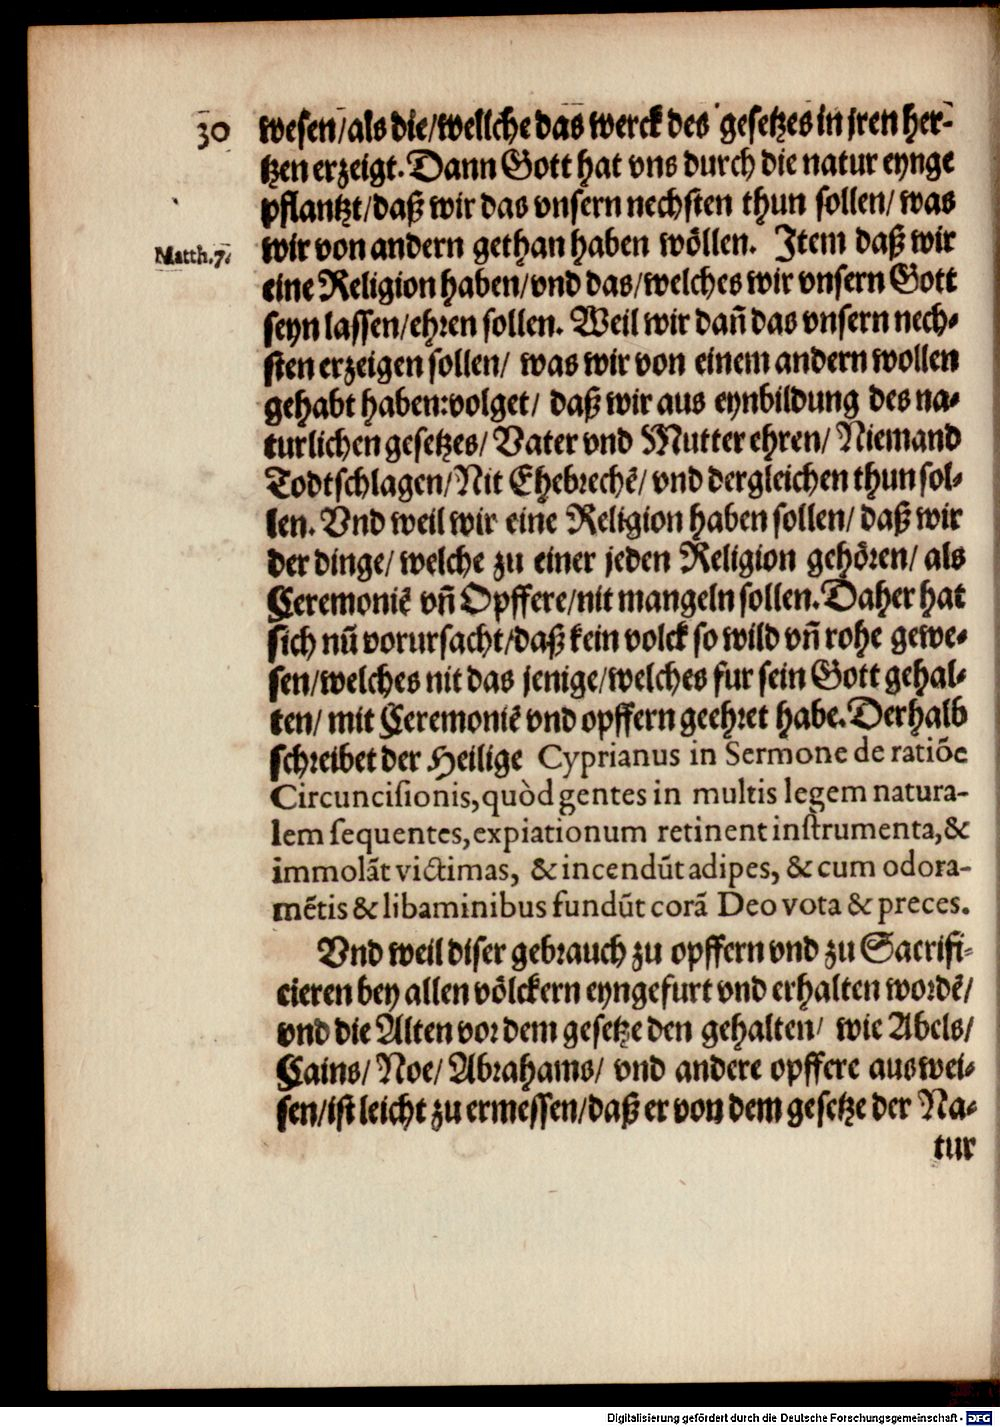 30 wesen/als die/wellche das werck des gesetzes in jren her-
tzen erzeigt. Dann Gott hat vns durch die natur eynge
pflantzt/daß wir das vnsern nechsten thun sollen/ was
Matth.7. wir von andern gethan haben wöllen. Item daß wir
eine Religion haben/vnd das/welches wir vnsern Gott
seyn lassen/ehren sollen. Weil wir dañ das vnsern nech-
sten erzeigen sollen/ was wir von einem andern wollen
gehabt haben:volget/ daß wir aus eynbildung des na-
turlichen gesetzes/ Vater vnd Mutter ehren/ Niemand
Todtschlagen/Nit Ehebrechē/ vnd dergleichen thun sol-
len. Vnd weil wir eine Religion haben sollen/ daß wir
der dinge/ welche zu einer jeden Religion gehören/ als
Ceremoniē vñ Opffere/nit mangeln sollen. Daher hat
sich nũ vorursacht/daß kein volck so wild vñ rohe gewe-
sen/welches nit das jenige/welches fur sein Gott gehal-
ten/ mit Ceremoniē vnd opffern geehret habe. Derhalb
schreibet der Heilige Cyprianus in Sermone de ratiōe
Circuncisionis, quòd gentes in multis legem natura-
lem sequentes, expiationum retinent instrumenta, &
immolãt victimas, & incendũt adipes, & cum odora-
mẽtis & libaminibus fundũt corã Deo vota & preces.
Vnd weil diser gebrauch zu opffern vnd zu Sacrifi-
cieren bey allen völckern eyngefurt vnd erhalten wordē/
vnd die Alten vor dem gesetze den gehalten/ wie Abels/
Cains/ Noe/ Abrahams/ vnd andere opffere auswei-
sen/ist leicht zu ermessen/daß er von dem gesetze der Na-
tur
Digitalisierung gefördert durch die Deutsche Forschungsgemeinschaft - DFG